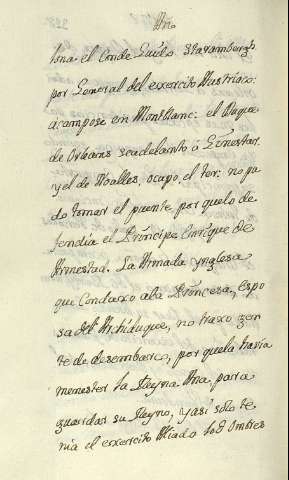 Año
lona el Conde Guido Staramberg,
por General del exercito Austriaco:
acampose en Montblanc: el Duque
de Orleans se adelanto à Ginestar
y el de Noalles, ocupo, el ter: no pu
do tomar el puente por que lo de
fendia el Principe Enrique de
Armestad. La Armada ynglesa
que Conduxo a la Princesa, espo
sa del Archiduque, no traxo gen
te de desembarco, por que la havia
menester la Reyna Ana para
guardar su Reyno, y asi solo te
nia el exercito Aliado 108 ombres